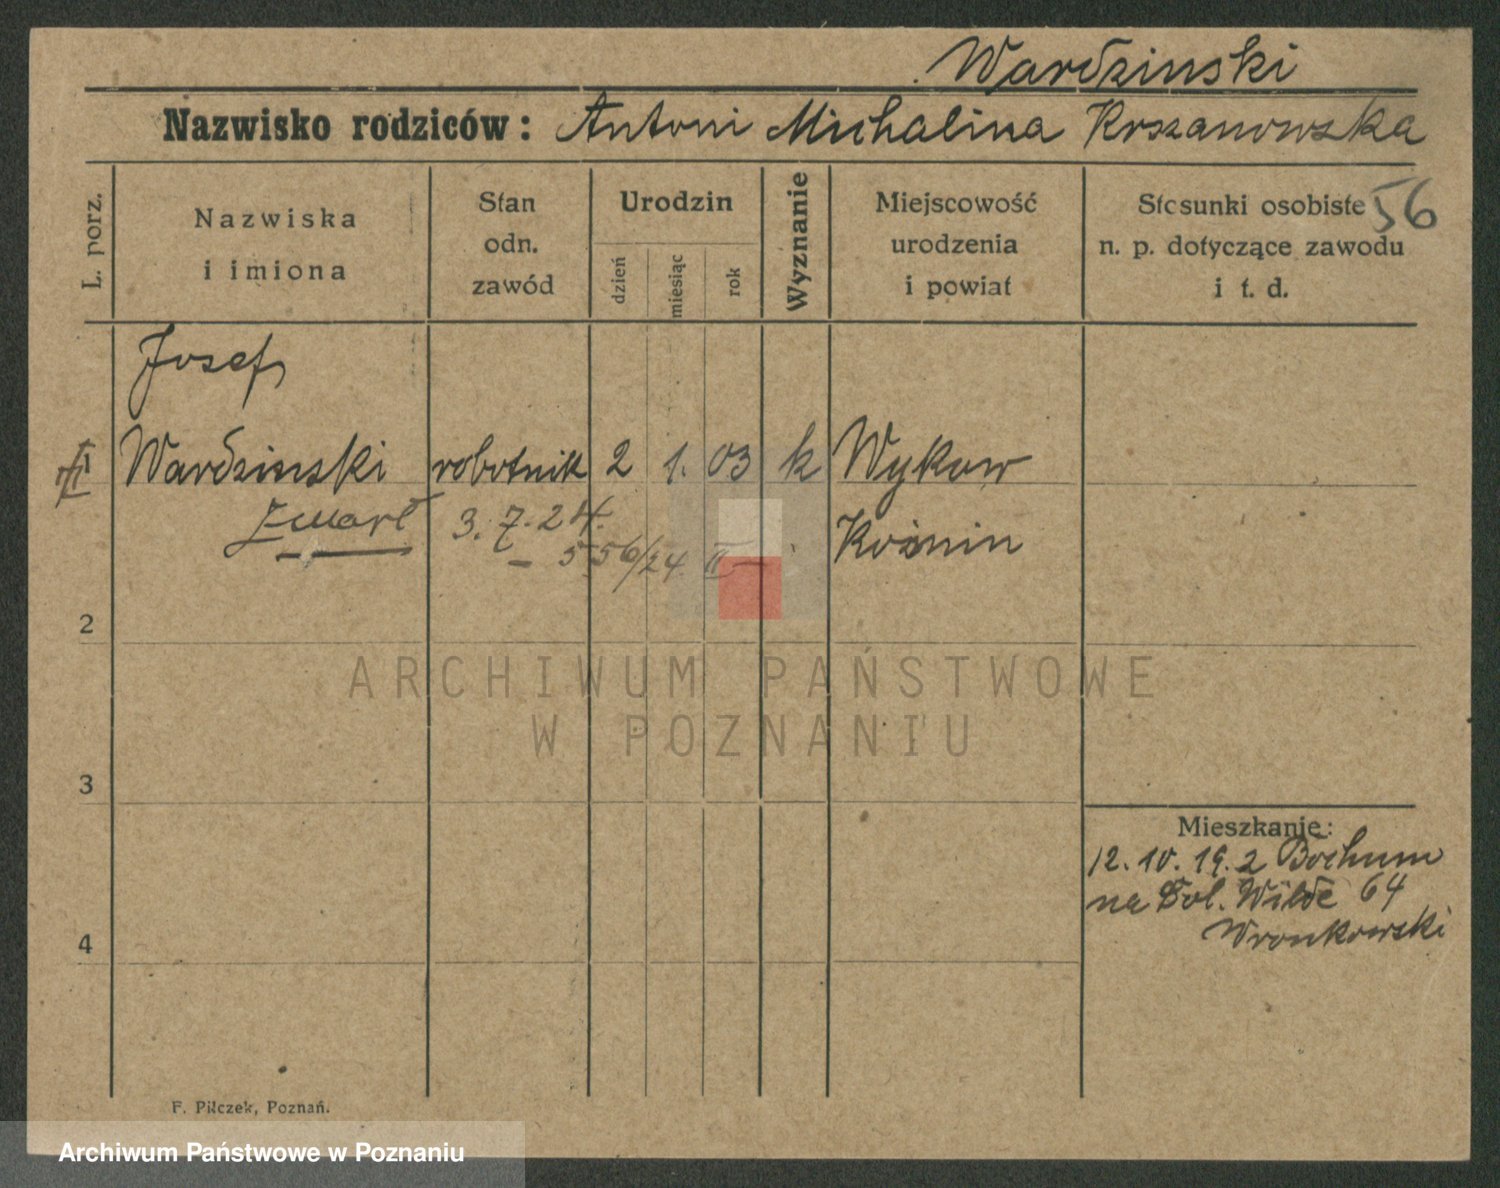 Wardzinski
Nazwisko rodziców: Antoni Michalina Krszanowska
L. porz.
Nazwiska
i imiona
Stan
odn.
zawód
Urodzin
dzień
miesiąc
rok
Wyznanie
Miejscowość
urodzenia
i powiat
Stosunki osobiste
n. p. dotyczące zawodu
i t. d.
56
Josef
Wardzinski robotnik 2 1. 03 k Wykow
Zmarł 3.7.24. Koźmin
– 556/24 II –
2
3
4
Mieszkanie:
12. 10. 19. 2 Bochum
na Dol. Wilde 64
Wronkowski
F. Pilczek, Poznań.
ARCHIWUM PAŃSTWOWE
W POZNANIU
Archiwum Państwowe w Poznaniu